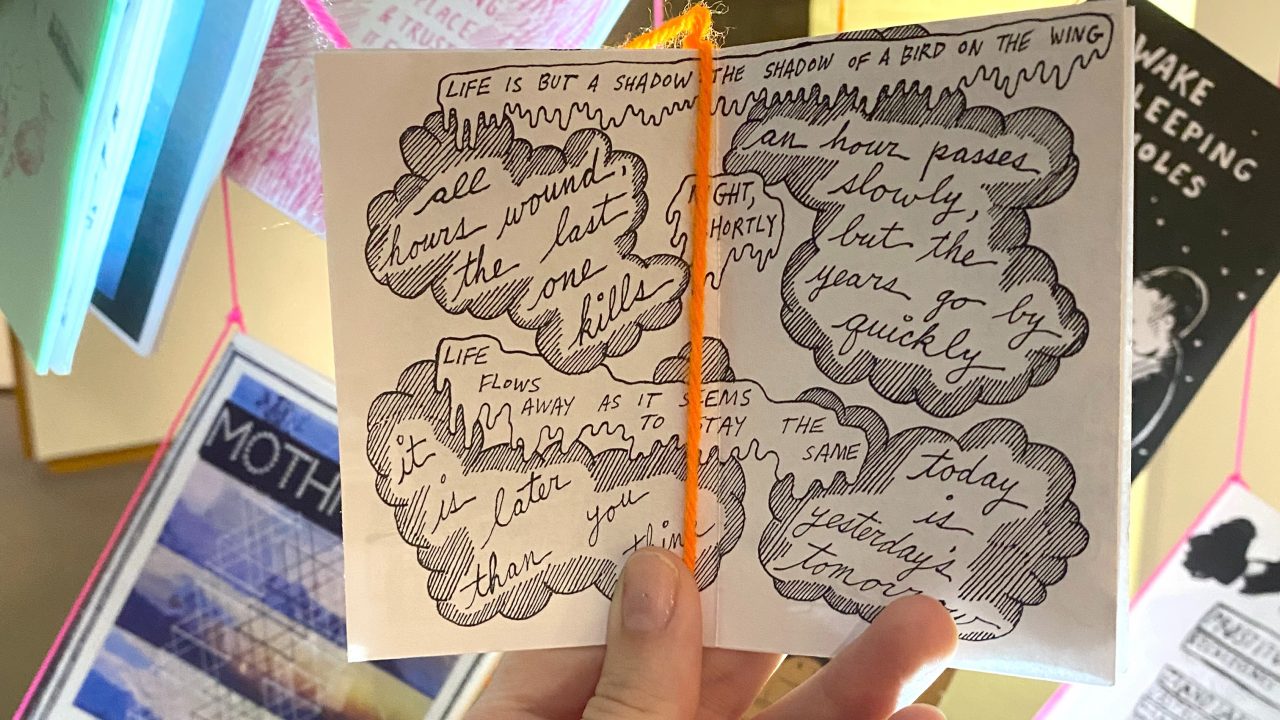 LIFE IS BUT A SHADOW THE SHADOW OF A BIRD ON THE WING
all
hours wound,
the last
one
kills
N GHT,
HORTLY
an hour passes
slowly,
but the
years go by
quickly
LIFE
FLOWS
AWAY AS IT SEEMS
TO STAY THE
SAME
it
is later
than you
think
today
is
yesterday's
tomorrow
PLACE
& TRUST
MOTH
WAKE
LEEPING
OLES